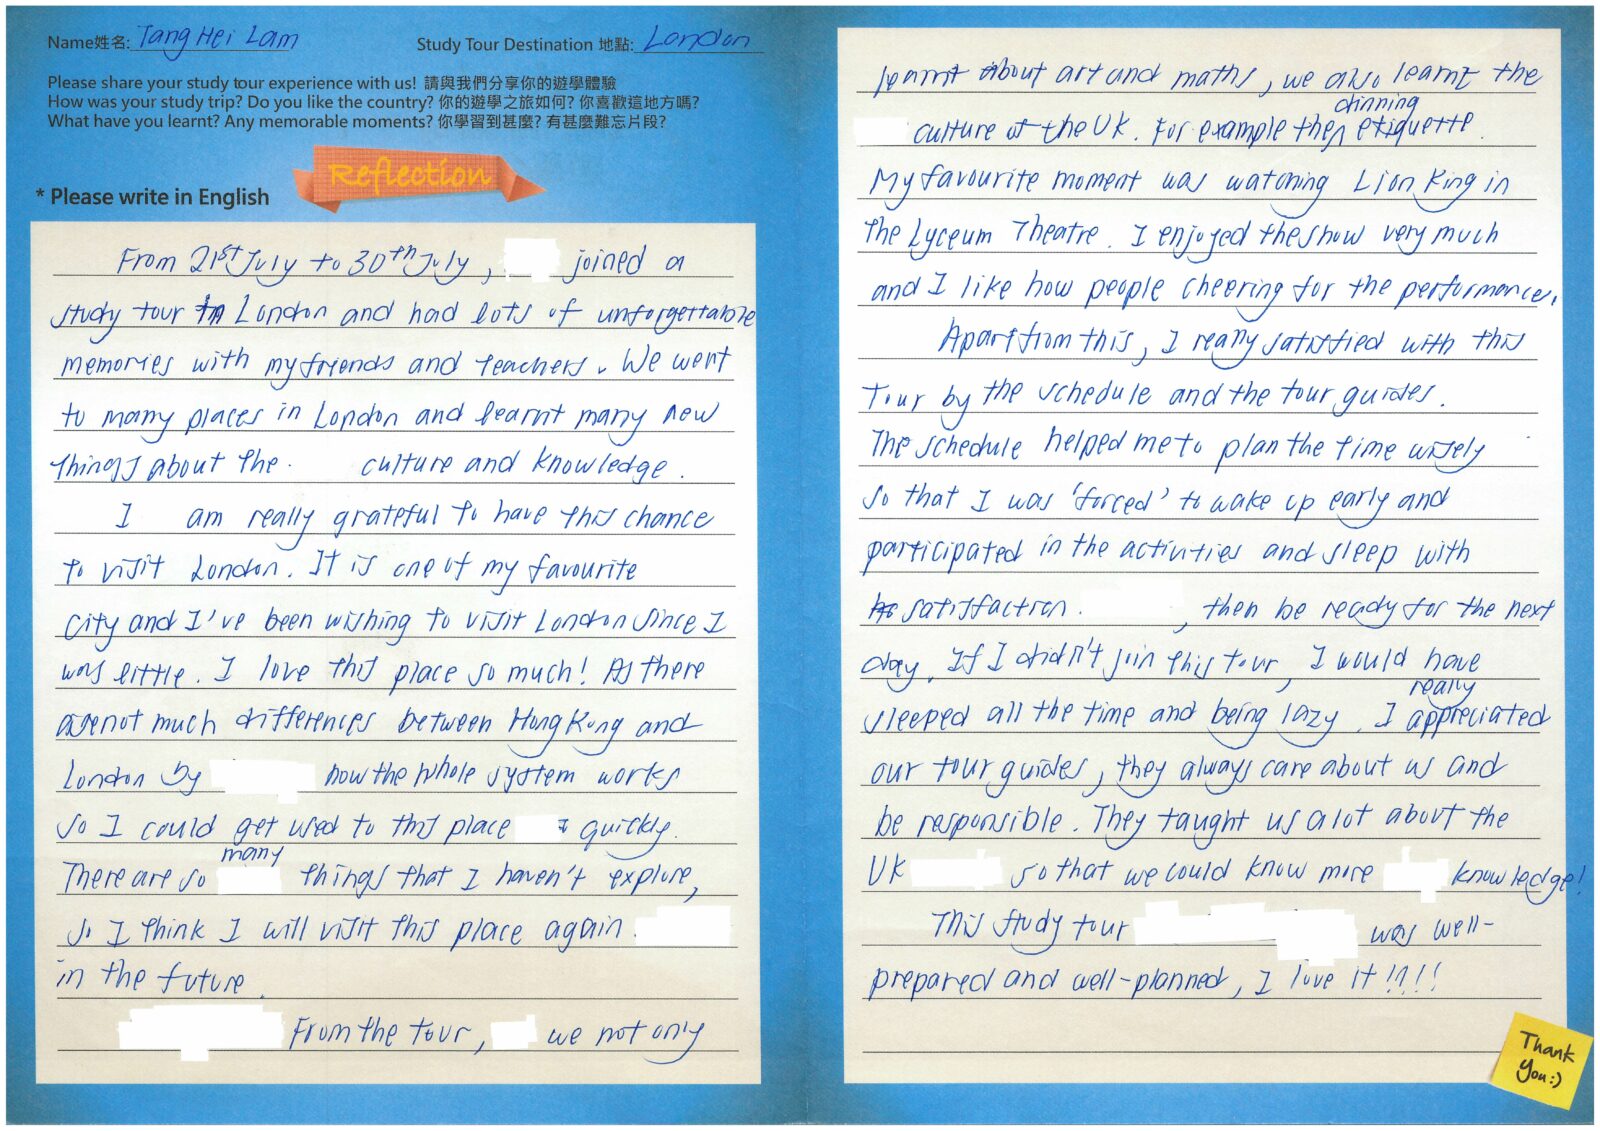 Name姓名: Tang Hei Lam
Study Tour Destination 地點: London
Please share your study tour experience with us! 請與我們分享你的遊學體驗
How was your study trip? Do you like the country? 你的遊學之旅如何? 你喜歡這地方嗎?
What have you learnt? Any memorable moments? 你學習到甚麼? 有甚麼難忘片段?
Reflection
* Please write in English
From 21st July to 30th July, joined a
study tour in London and had lots of unforgettable
memories with my friends and teachers. We went
to many places in London and learnt many new
things about the culture and knowledge.
I am really grateful to have this chance
to visit London. It is one of my favourite
city and I've been wishing to visit London since I
was little. I love this place so much! As there
are not much differences between Hong Kong and
London by how the whole system works
so I could get used to this place quickly.
There are so many things that I haven't explore,
so I think I will visit this place again
in the future.
From the tour, we not only
learnt about art and maths, we also learnt the
culture of the UK. For example the dinning etiquette.
My favourite moment was watching Lion King in
the Lyceum Theatre. I enjoyed the show very much
and I like how people cheering for the performance.
Apart from this, I really satisfied with this
tour by the schedule and the tour guides.
The schedule helped me to plan the time wisely
so that I was 'forced' to wake up early and
participated in the activities and sleep with
satisfaction. , then be ready for the next
day. If I didn't join this tour, I would have
sleeped all the time and being lazy. I really appreciated
our tour guides, they always care about us and
be responsible. They taught us a lot about the
UK so that we could know more knowledge!
This study tour was well-
prepared and well-planned, I love it!!!!
Thank
You:)